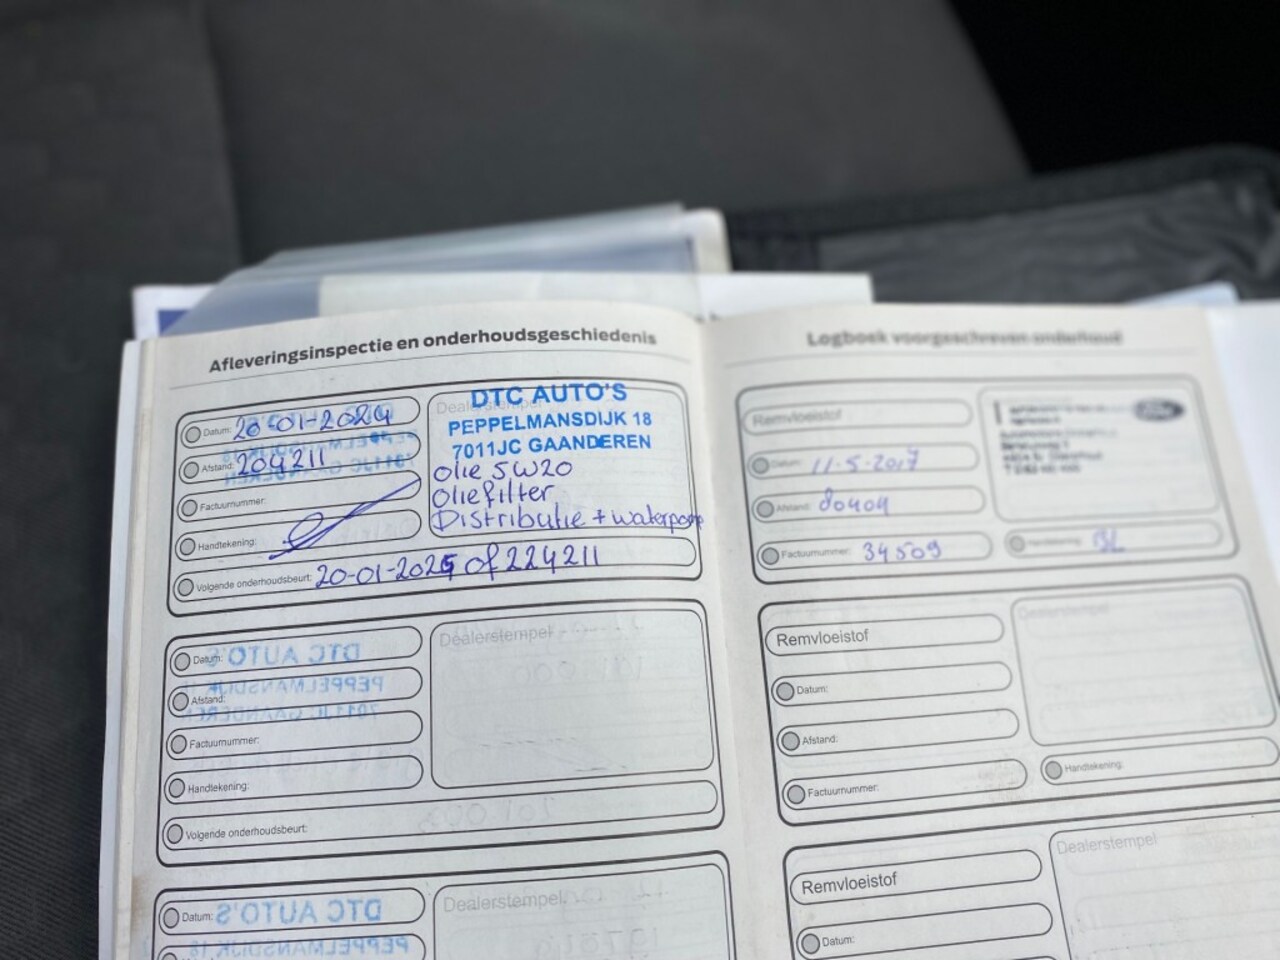 Afleveringsinspectie en onderhoudsgeschiedenis
Datum: 20-01-2024
Afstand: 204211
Factuurnummer:
Handtekening:
Dealerstempel
DTC AUTO'S
PEPPELMANSDIJK 18
7011JC GAANDEREN
Olie 5W20
Oliefilter
Distributie + waterpomp
Volgende onderhoudsbeurt: 20-01-2025 of 224211
Datum:
Afstand:
Factuurnummer:
Handtekening:
Volgende onderhoudsbeurt:
Dealerstempel
Datum:
Dealerstempel
Logboek voorgeschreven onderhoud
Remvloeistof
Datum: 11-5-2017
Afstand: 80404
Factuurnummer: 34509
Handtekening:
Remvloeistof
Datum:
Afstand:
Factuurnummer:
Dealerstempel
Handtekening:
Remvloeistof
Datum:
Dealerstempel